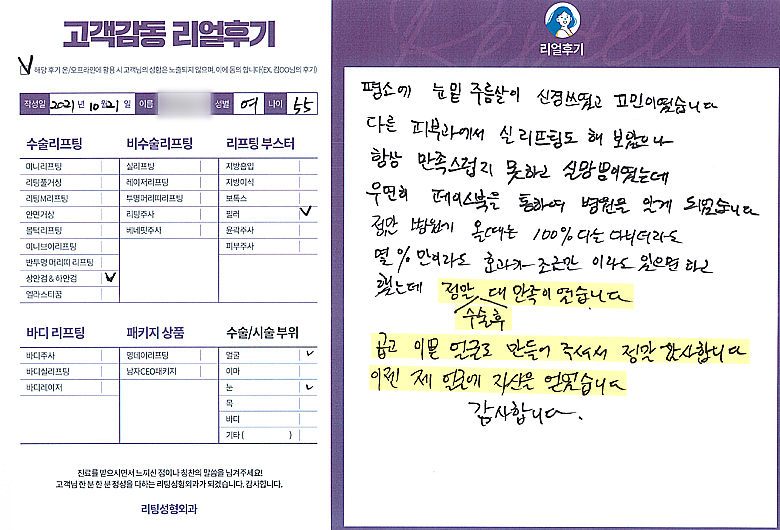 고객감동 리얼후기
해당 후기 온/오프라인에 활용 시 고객님의 성함은 노출되지 않으며, 이에 동의 합니다(EX, 김OO님의 후기)
작성일 2021년 10월 21일 이름 성별 여 나이 55
수술리프팅
미니리프팅
리팅풀거상
리팅M리프팅
안면거상
몰턱리프팅
미니브이리프팅
반투명 머리띠 리프팅
상안검 & 하안검
엘라스티꿈
비수술리프팅
실리프팅
레이저리프팅
투명머리띠리프팅
리팅주사
베네핏주사
리프팅 부스터
지방흡입
지방이식
보톡스
필러
윤곽주사
피부주사
바디 리프팅
바디주사
바디실리프팅
바디레이저
패키지 상품
명데이리프팅
남자CEO패키지
수술/시술 부위
얼굴
이마
눈
목
바디
기타 ( )
진료를 받으시면서 느끼신 점이나 칭찬의 말씀을 남겨주세요!
고객님 한 분 한 분 정성을 다하는 리팅성형외과가 되겠습니다. 감사합니다.
리팅성형외과
Review
리얼후기
평소에 눈밑 주름살이 신경쓰였고 고민이었습니다
다른 피부과에서 실리프팅도 해 보았으나
항상 만족스럽지 못하고 실망뿐이였는데
우연히 페이스북을 통하여 병원을 알게 되었습니다
정말 병원기 올때는 100% 다는 아니더라도
몇 % 만이라도 효과가 조금만 이라도 있으면 하고
했는데 정말 대 만족이 였습니다
수술후
곱고 이쁜 얼굴로 만들어 주셔서 정말 감사합니다
이젠 제 얼굴에 자신을 얻었습니다
감사합니다.